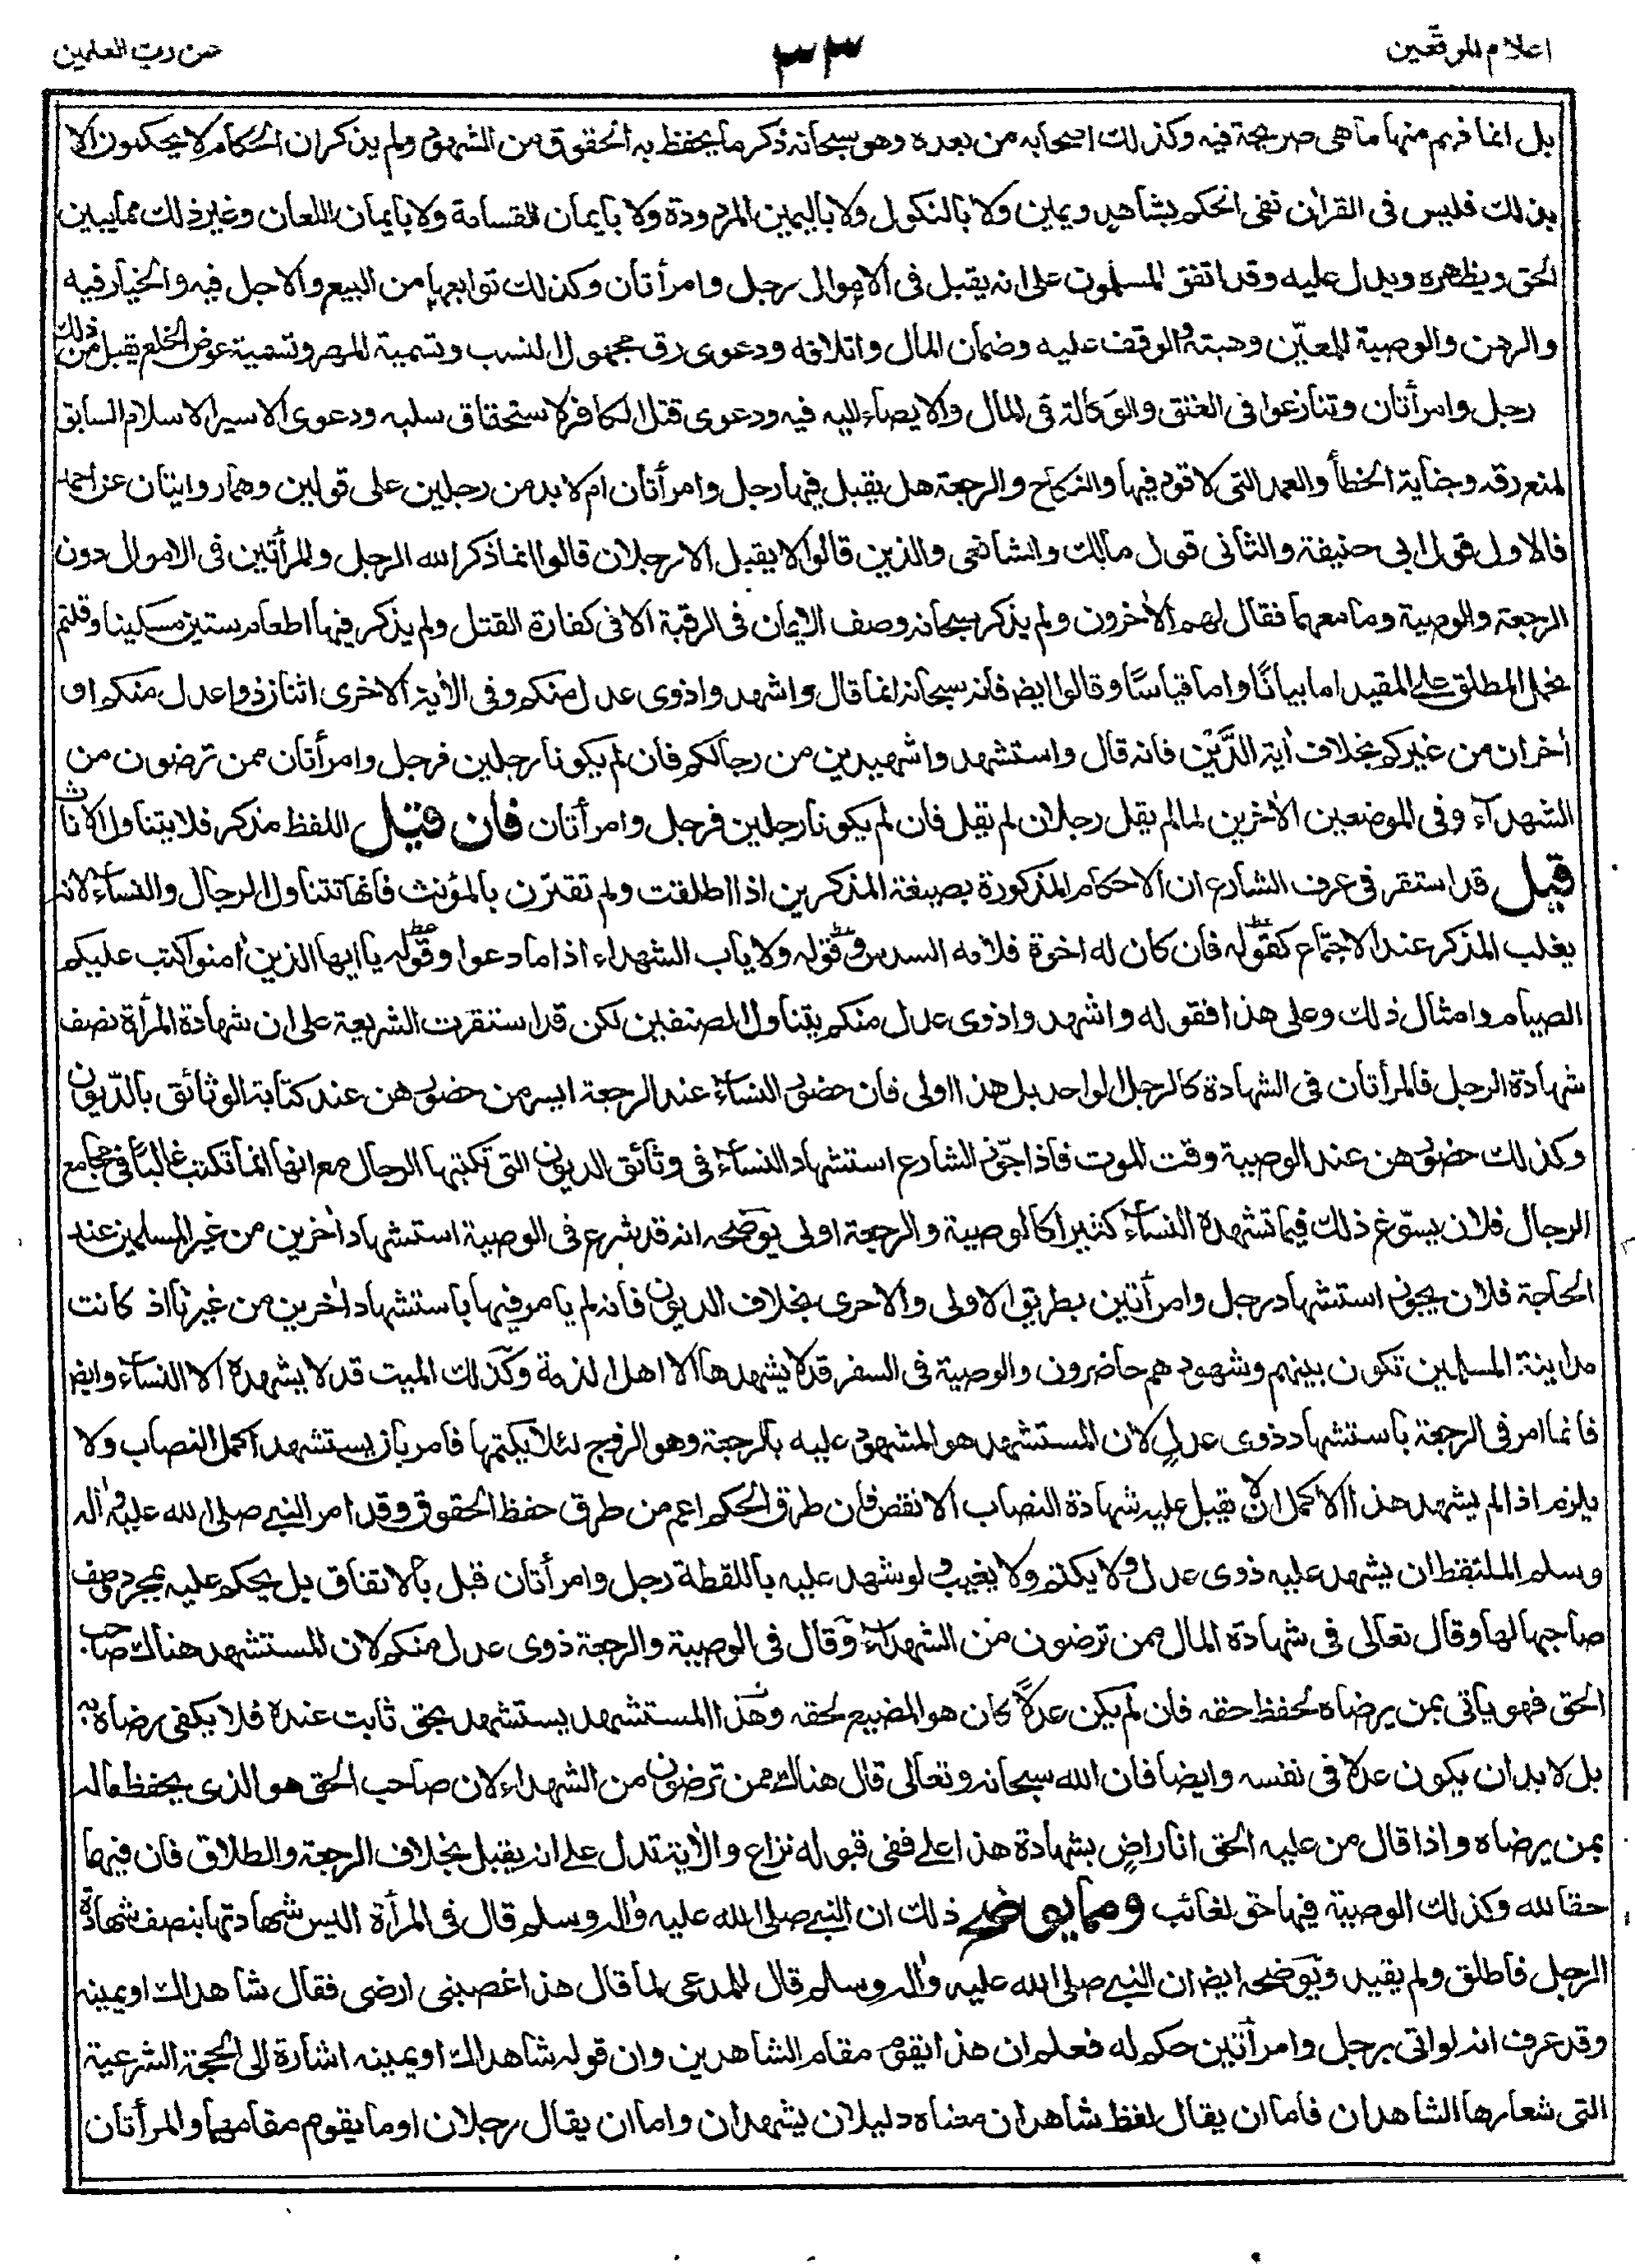 اعلام الموقعين
٣٣
عن رب العلمين
بل انما فهم منها ما هى صريحة فيه وكذلك اصحابه من بعده وهو سبحانه ذكر ما يحفظ به الحقوق من الشهود ولم يذكر ان الحكام لا يحكمون الا
بذلك فليس فى القرآن نفى الحكم بشاهد ويمين ولا بالنكول ولا باليمين المردودة ولا بايمان القسامة ولا بايمان اللعان وغير ذلك مما يبين
الحق ويظهره ويدل عليه وقد اتفق المسلمون على انه يقبل فى الاموال رجل وامرأتان وكذلك توابعها من البيع والاجل فيه والخيار فيه
والرهن والوصية للمعيّن وهبته والوقف عليه وضمان المال واتلافه ودعوى رق مجهول النسب وتسمية المهر وتسمية عوض الخلع يقبل من ذلك
رجل وامرأتان وتنازعوا فى العتق والوكالة فى المال والايصاء اليه فيه ودعوى قتل الكافر لاستحقاق سلبه ودعوى الاسير الاسلام السابق
لمنع رقه وجناية الخطأ والعمد التى لا قود فيها والنكاح والرجعة هل يقبل فيها رجل وامرأتان ام لا بد من رجلين على قولين وهما روايتان عن احمد
فالاول قول ابى حنيفة والثانى قول مالك والشافعى والذين قالوا لا يقبل الا رجلان قالوا انما ذكر الله الرجل والمرأتين فى الاموال دون
الرجعة والوصية وما معهما فقال لهم الآخرون ولم يذكر سبحانه وصف الايمان فى الرقبة الا فى كفارة القتل ولم يذكر فيها اطعام ستين مسكينا وقلتم
نحمل المطلق على المقيد اما بيانًا واما قياسًا وقالوا ايضا فانه سبحانه انما قال واشهدوا ذوى عدل منكم وفى الآية الاخرى اثنان ذوا عدل منكم او
آخران من غيركم بخلاف آية الدَّيْن فانه قال واستشهدوا شهيدين من رجالكم فان لم يكونا رجلين فرجل وامرأتان ممن ترضون من
الشهدآء وفى الموضعين الآخرين لما لم يقل رجلان لم يقل فان لم يكونا رجلين فرجل وامرأتان فان قيل اللفظ مذكر فلا يتناول الاناث
قيل قد استقر فى عرف الشارع ان الاحكام المذكورة بصيغة المذكرين اذا اطلقت ولم تقترن بالمؤنث فانها تتناول الرجال والنساء لانه
يغلب المذكر عند الاجتماع كقوله فان كان له اخوة فلامه السدس وقوله ولا ياب الشهداء اذا ما دعوا وقوله يا ايها الذين آمنوا كتب عليكم
الصيام وامثال ذلك وعلى هذا فقوله واشهدوا ذوى عدل منكم يتناول الصنفين لكن قد استقرت الشريعة على ان شهادة المرأة نصف
شهادة الرجل فالمرأتان فى الشهادة كالرجل الواحد بل هذا اولى فان حضور النساء عند الرجعة ايسر من حضورهن عند كتابة الوثائق بالديون
وكذلك حضورهن عند الوصية وقت الموت فاذا جوّز الشارع استشهاد النساء فى وثائق الديون التى تكتبها الرجال مع انها انما تكتب غالبًا فى مجامع
الرجال فلان يسوّغ ذلك فيما تشهده النساء كثيرا كالوصية والرجعة اولى يوضحه انه قد شرع فى الوصية استشهاد آخرين من غير المسلمين عند
الحاجة فلان يجوز استشهاد رجل وامرأتين بطريق الاولى والاحرى بخلاف الديون فانه لم يامر فيها باستشهاد آخرين من غيرنا اذ كانت
مداينة المسلمين تكون بينهم وشهودهم حاضرون والوصية فى السفر قد لا يشهدها الا اهل الذمة وكذلك الميت قد لا يشهده الا النساء وايضا
فانما امر فى الرجعة باستشهاد ذوى عدلٍ لان المستشهد هو المشهود عليه بالرجعة وهو الزوج لئلا يكتمها فامر بان يستشهد اكمل النصاب ولا
يلزم اذا لم يشهد هذا الاكمل ان لا يقبل عليه شهادة النصاب الانقص فان طرق الحكم اعم من طرق حفظ الحقوق وقد امر النبى صلى الله عليه وآله
وسلم الملتقط ان يشهد عليه ذوى عدل ولا يكتم ولا يغيب ولو شهد عليه باللقطة رجل وامرأتان قبل بالاتفاق بل يحكم عليه بمجرد وصف
صاحبها لها وقال تعالى فى شهادة المال ممن ترضون من الشهداء وقال فى الوصية والرجعة ذوى عدل منكم لان المستشهد هناك صاحب
الحق فهو ياتى بمن يرضاه لحفظ حقه فان لم يكن عدلًا كان هو المضيع لحقه وهذا المستشهد يستشهد بحق ثابت عنده فلا يكفى رضاه به
بل لا بد ان يكون عدلا فى نفسه وايضا فان الله سبحانه وتعالى قال هناك ممن ترضون من الشهداء لان صاحب الحق هو الذى يحفظ ماله
بمن يرضاه واذا قال من عليه الحق انا راضٍ بشهادة هذا على ففى قبوله نزاع والآية تدل على انه يقبل بخلاف الرجعة والطلاق فان فيهما
حقا لله وكذلك الوصية فيها حق لغائب ومما يوضح ذلك ان النبى صلى الله عليه وآله وسلم قال فى المرأة اليس شهادتها بنصف شهادة
الرجل فاطلق ولم يقيد ويوضحه ايضا ان النبى صلى الله عليه وآله وسلم قال للمدعى لما قال هذا غصبنى ارضى فقال شاهداك او يمينه
وقد عرف انه لو اتى برجل وامرأتين حكم له فعلم ان هذا يقوم مقام الشاهدين وان قوله شاهداك او يمينه اشارة الى الحجة الشرعية
التى شعارها الشاهدان فاما ان يقال لفظ شاهدان معناه دليلان يشهدان واما ان يقال رجلان او ما يقوم مقامهما والمرأتان